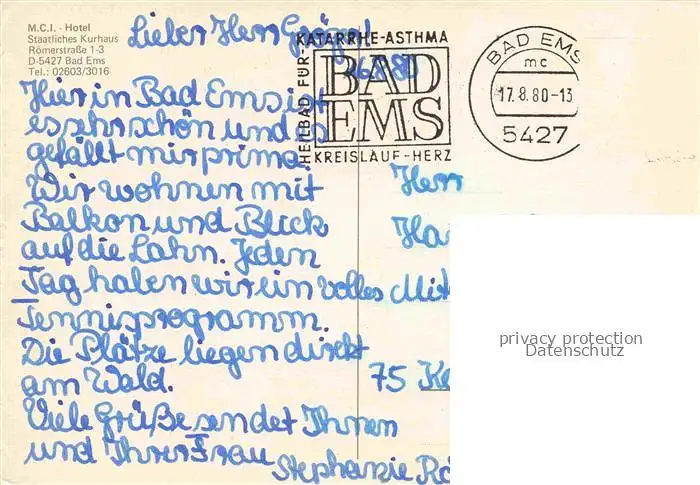 M.C.I. - Hotel
Staatliches Kurhaus
Römerstraße 1-3
D-5427 Bad Ems
Tel.: 02603/3016
HEILBAD FÜR-KATARRHE-ASTHMA
BAD
EMS
KREISLAUF-HERZ
BAD EMS
mc
17.8.80-13
5427
Lieber Herr
Hier in Bad Ems ist
es sehr schön und es
gefällt mir prima.
Wir wohnen mit
Balkon und Blick
auf die Lahn. Jeden
Tag haben wir ein volles
Tennisprogramm.
Die Plätze liegen direkt
am Wald.
Viele Grüße sendet Ihnen
und Ihrer Frau
Stephanie
Herr
75
privacy protection
Datenschutz